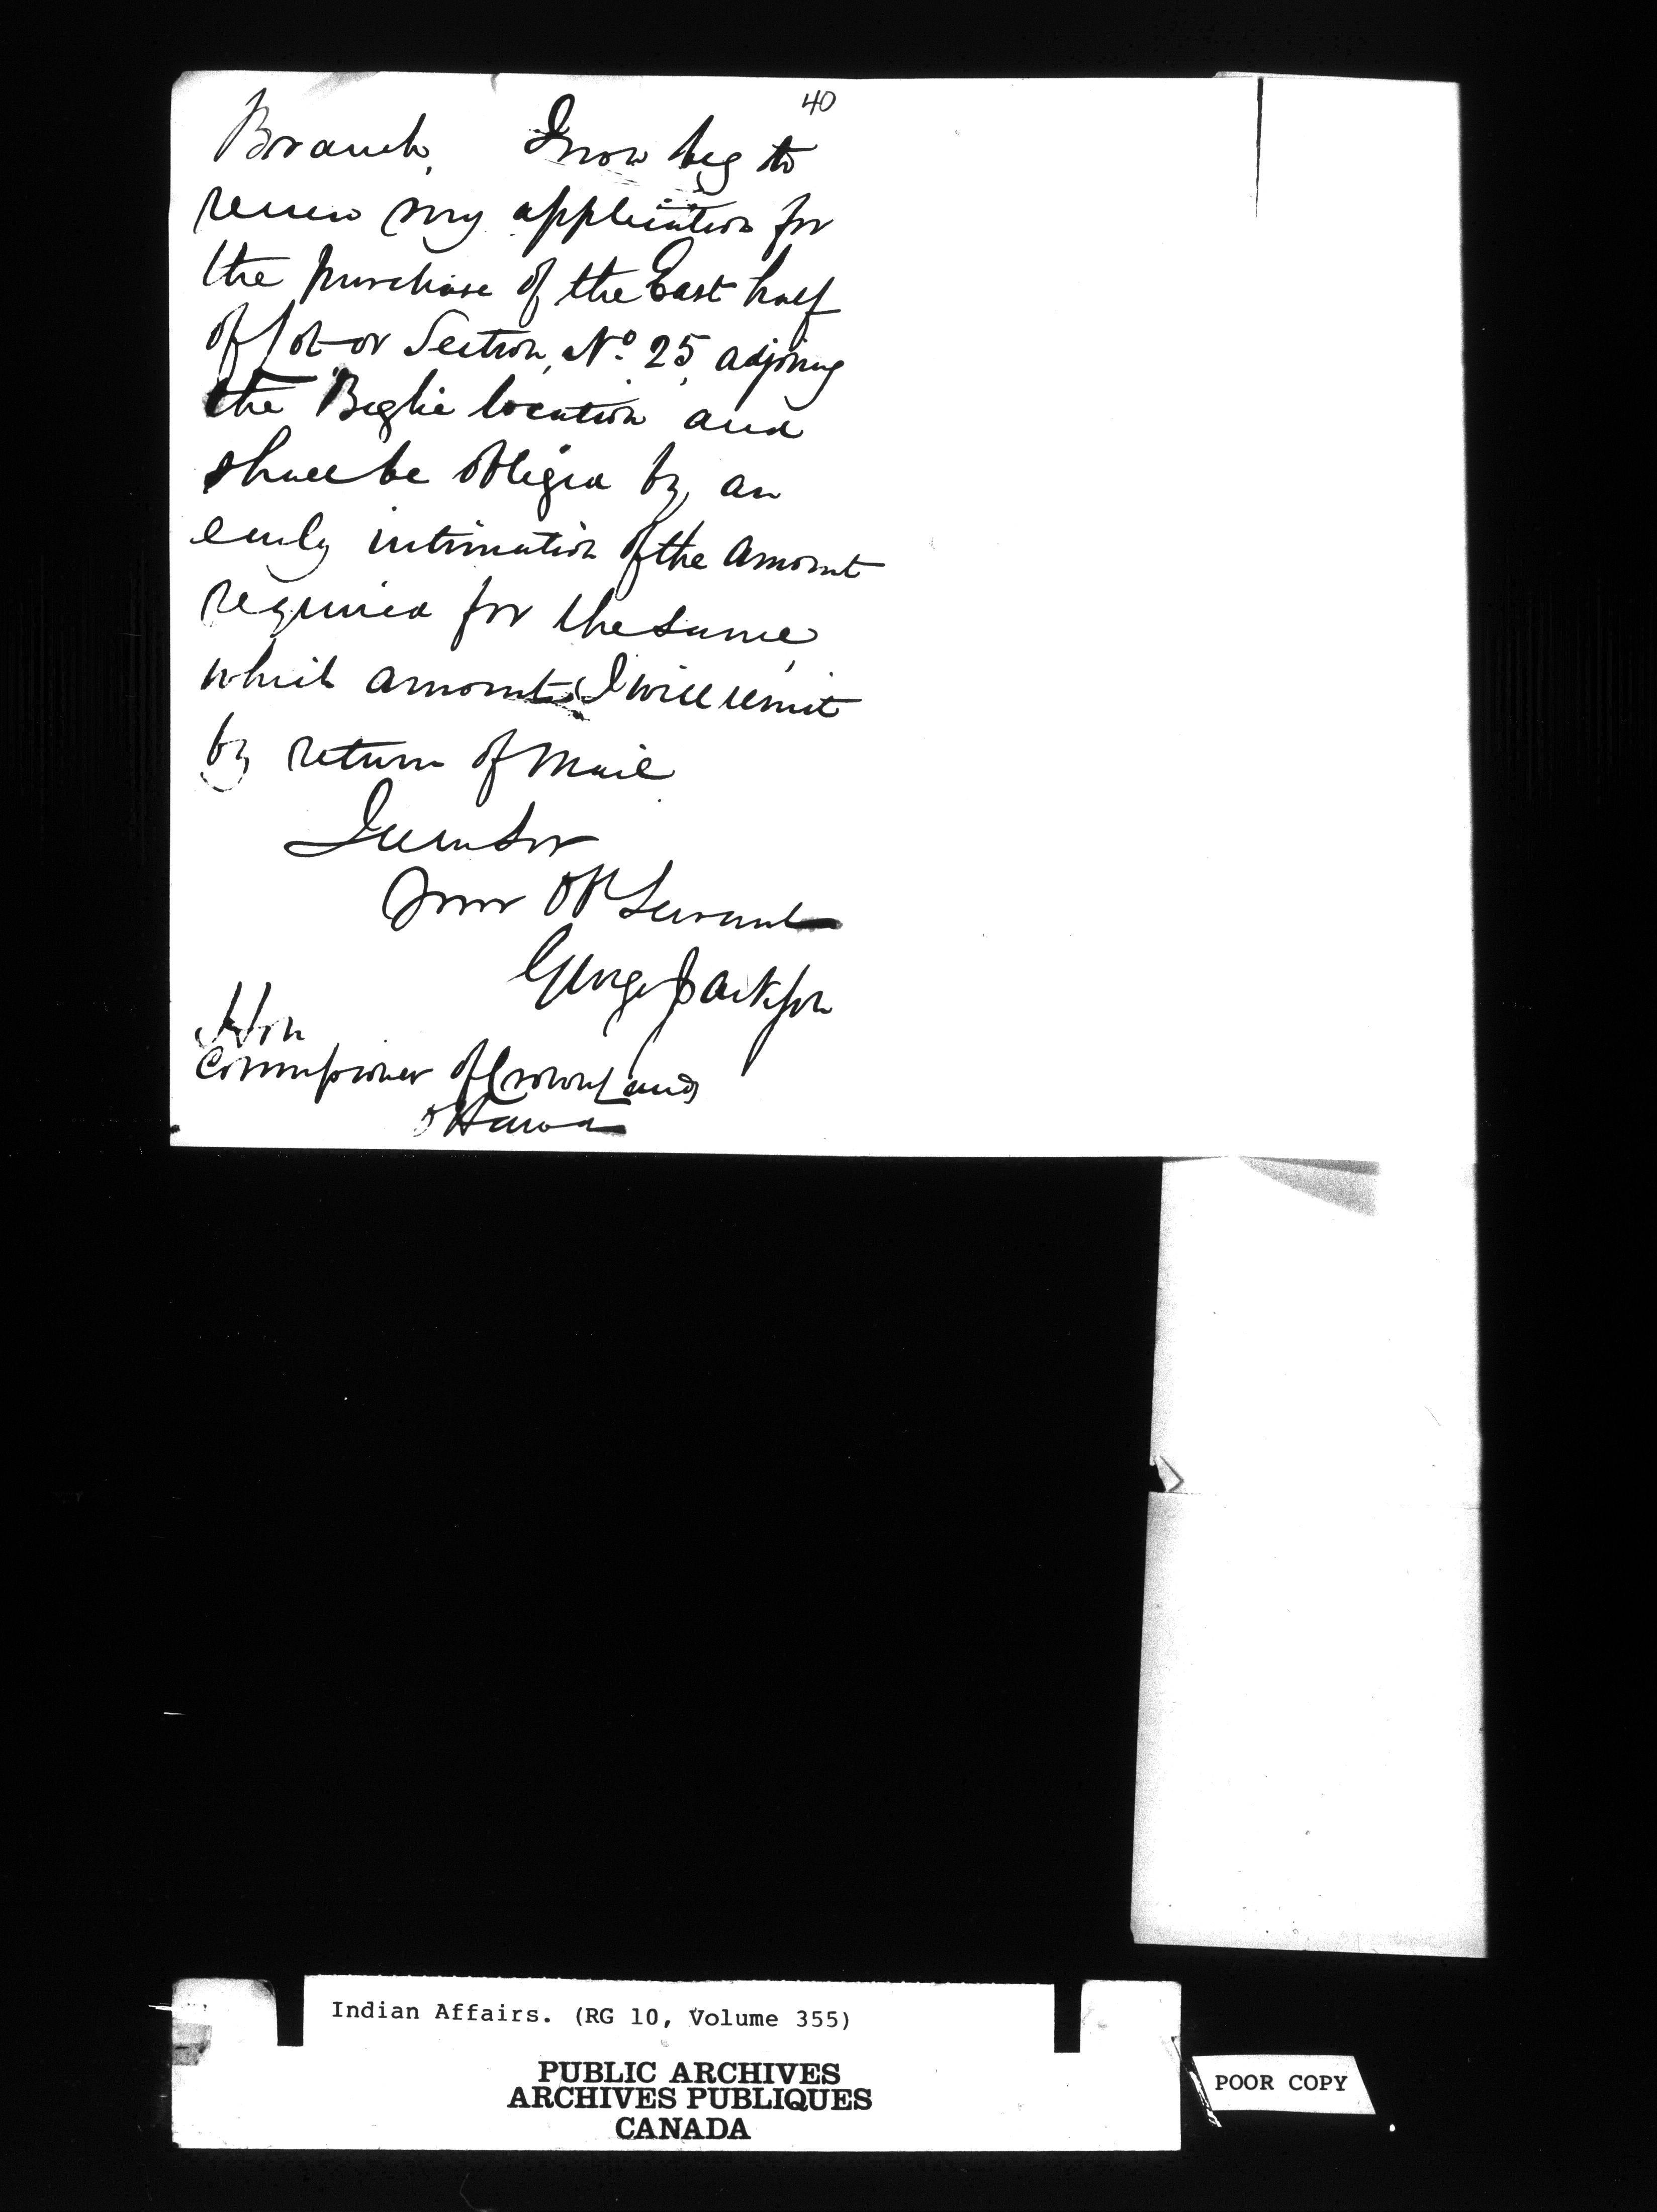 40
Branch, I now beg to
renew my application for
the purchase of the East half
of Lot or Section, No. 25, adjoining
the Beglie location and
shall be obliged by an
early intimation of the amount
required for the same,
which amount I will remit
by return of Mail
I am Sir
Your Ob Servant
George Jackson
Hon
Commissioner of Crown Lands
Ottawa
Indian Affairs. (RG 10, Volume 355)
PUBLIC ARCHIVES
ARCHIVES PUBLIQUES
CANADA
POOR COPY